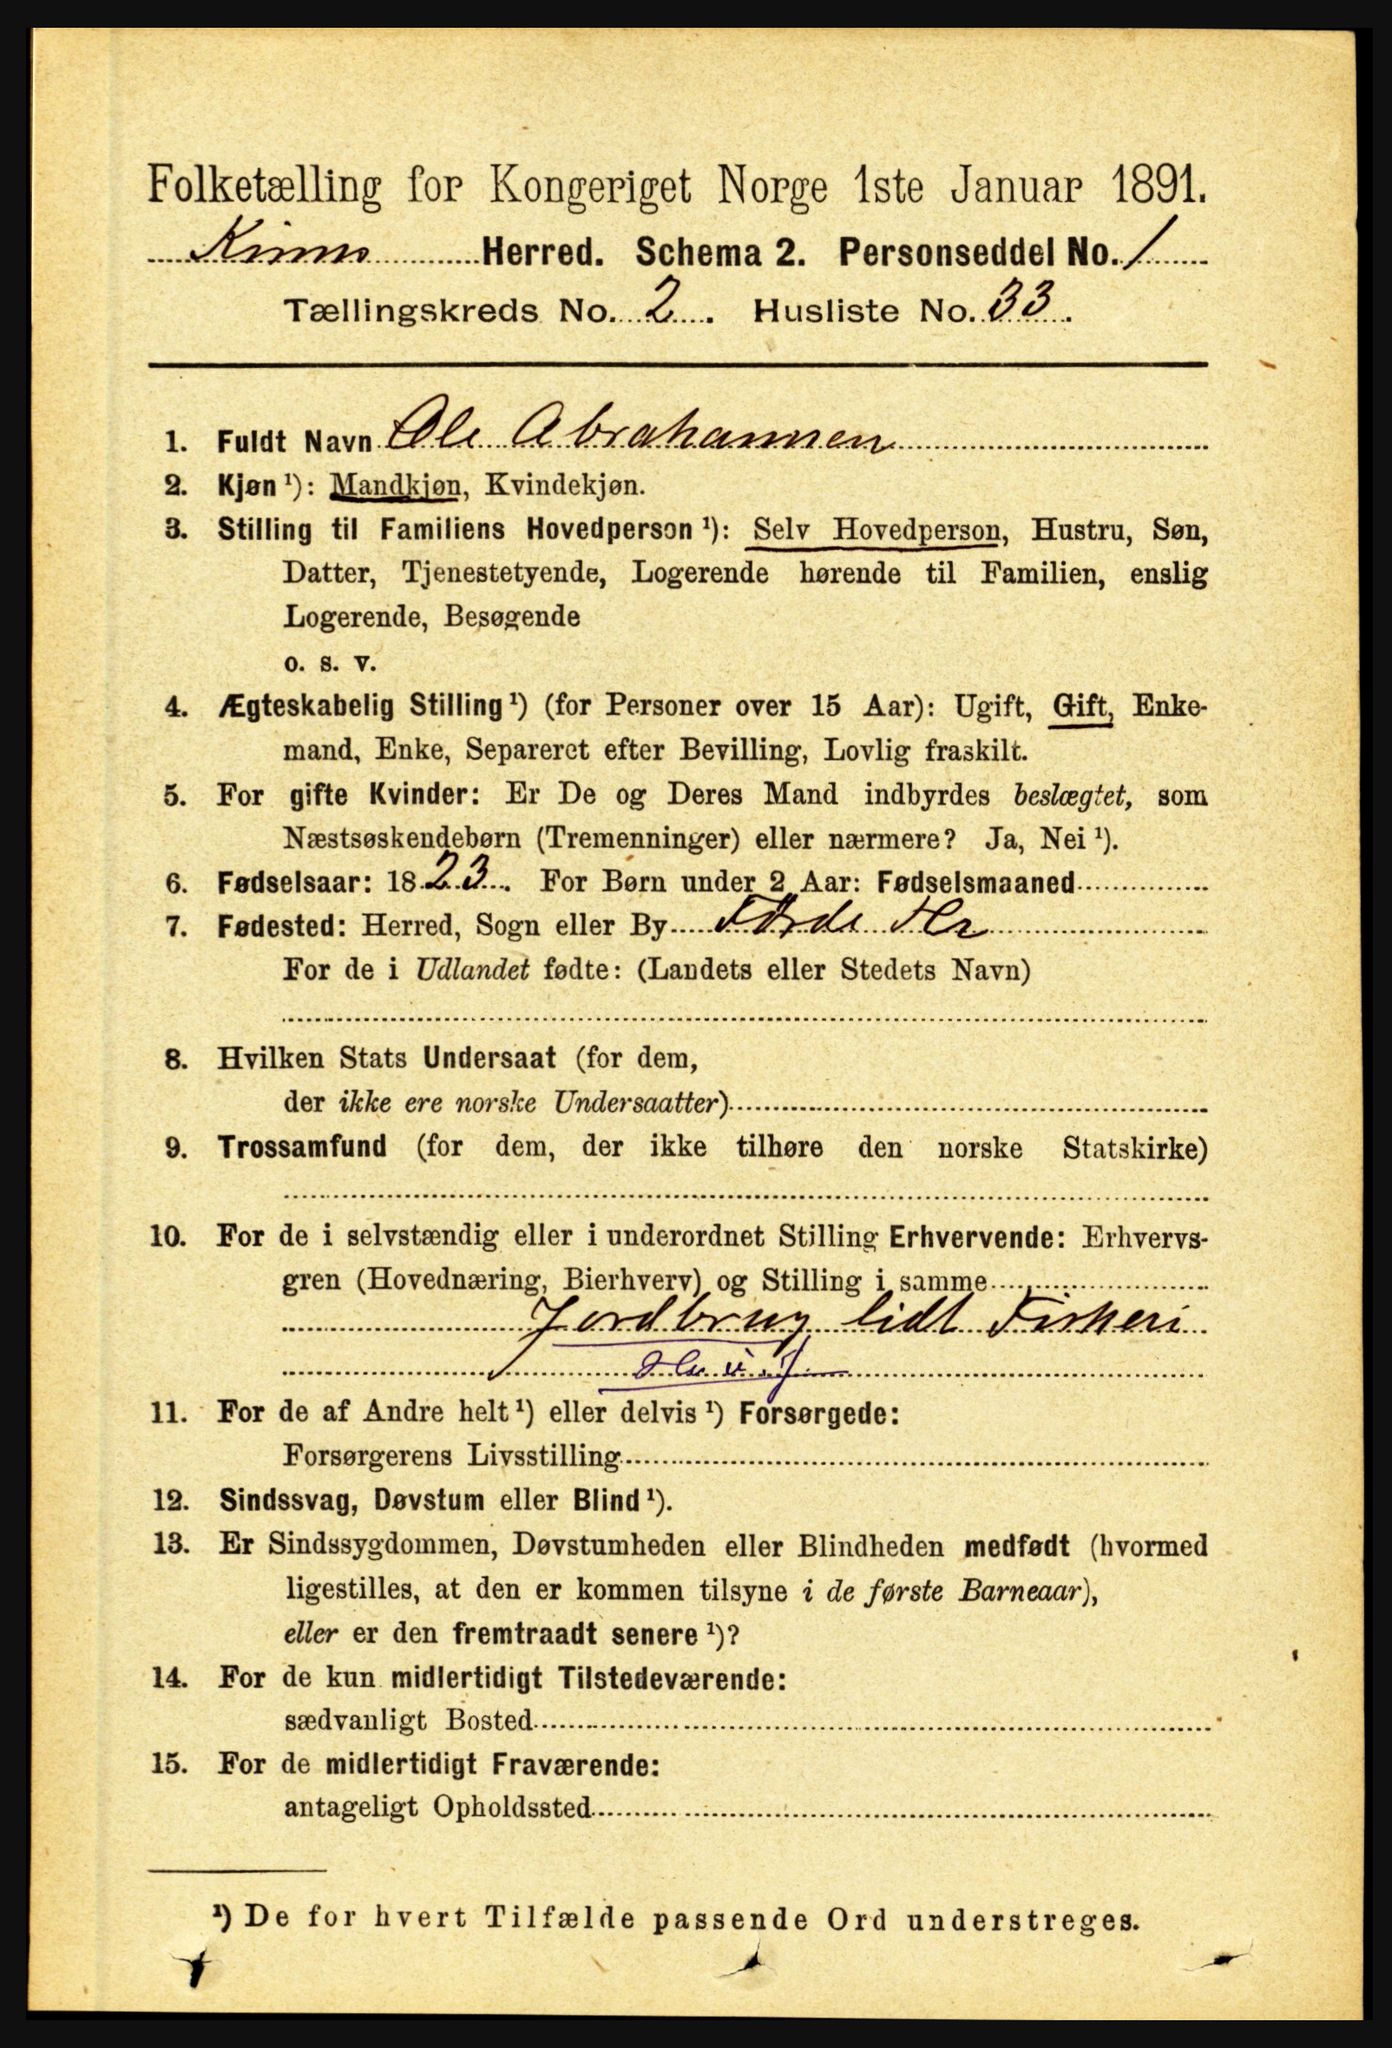 Folketælling for Kongeriget Norge 1ste Januar 1891.
Kinns Herred. Schema 2. Personseddel No. 1
Tællingskreds No. 2. Husliste No. 33.
1. Fuldt Navn Ole Abrahamsen
2. Kjøn ¹): Mandkjøn, Kvindekjøn.
3. Stilling til Familiens Hovedperson ¹): Selv Hovedperson, Hustru, Søn,
Datter, Tjenestetyende, Logerende hørende til Familien, enslig
Logerende, Besøgende
o. s. v.
4. Ægteskabelig Stilling ¹) (for Personer over 15 Aar): Ugift, Gift, Enke-
mand, Enke, Separeret efter Bevilling, Lovlig fraskilt.
5. For gifte Kvinder: Er De og Deres Mand indbyrdes beslægtet, som
Næstsøskendebørn (Tremenninger) eller nærmere? Ja, Nei ¹).
6. Fødselsaar: 1823. For Børn under 2 Aar: Fødselsmaaned
7. Fødested: Herred, Sogn eller By Førde Hr
For de i Udlandet fødte: (Landets eller Stedets Navn)
8. Hvilken Stats Undersaat (for dem,
der ikke ere norske Undersaatter)
9. Trossamfund (for dem, der ikke tilhøre den norske Statskirke)
10. For de i selvstændig eller i underordnet Stilling Erhvervende: Erhvervs-
gren (Hovednæring, Bierhverv) og Stilling i samme
Jordbrug lidt Fiskeri
11. For de af Andre helt ¹) eller delvis ¹) Forsørgede:
Forsørgerens Livsstilling
12. Sindssvag, Døvstum eller Blind ¹).
13. Er Sindssygdommen, Døvstumheden eller Blindheden medfødt (hvormed
ligestilles, at den er kommen tilsyne i de første Barneaar),
eller er den fremtraadt senere ¹)?
14. For de kun midlertidigt Tilstedeværende:
sædvanligt Bosted
15. For de midlertidigt Fraværende:
antageligt Opholdssted
¹) De for hvert Tilfælde passende Ord understreges.